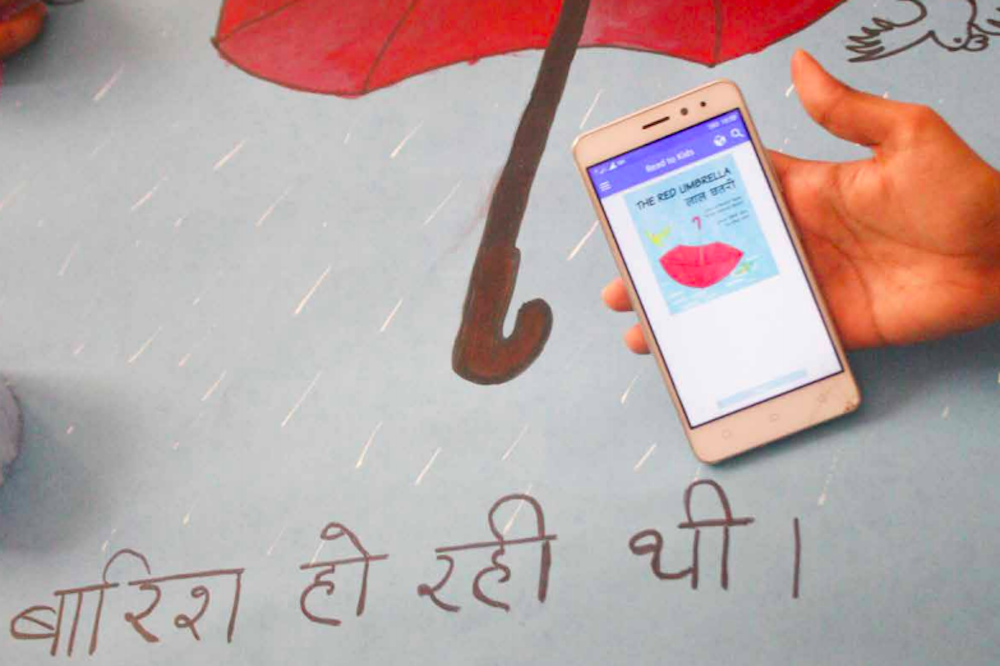 Read to Kids
THE RED UMBRELLA
लाल छतरी
बारिश हो रही थी ।